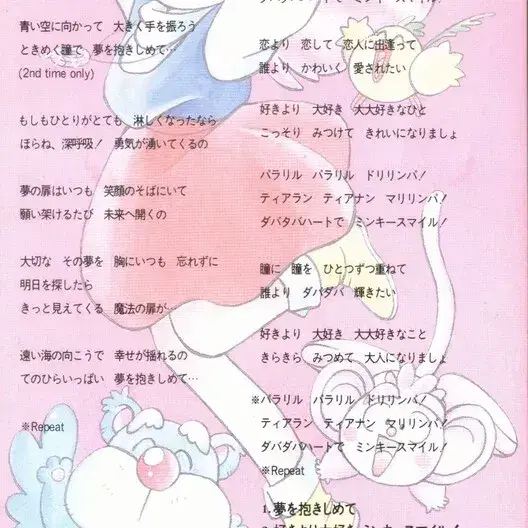 青い空に向かって 大きく手を振ろう
ときめく瞳で 夢を抱きしめて…
(2nd time only)
もしもひとりがとても 淋しくなったなら
ほらね、深呼吸! 勇気が湧いてくるの
夢の扉はいつも 笑顔のそばにいて
願い架けるたび 未来へ開くの
大切な その夢を 胸にいつも 忘れずに
明日を探したら
きっと見えてくる 魔法の扉が…
遠い海の向こうで 幸せが揺れるの
てのひらいっぱい 夢を抱きしめて…
※Repeat
ダバダバハートで ミンキースマイル!
恋より 恋して 恋人に出逢って
誰より かわいく 愛されたい
好きより 大好き 大大好きなひと
こっそり みつけて きれいになりましょ
パラリル パラリル ドリリンパ!
ティアラン ティアナン マリリンパ!
ダバダバハートで ミンキースマイル!
瞳に 瞳を ひとつずつ重ねて
誰より ダバダバ 輝きたい
好きより 大好き 大大好きなこと
きらきら みつめて 大人になりましょ
※パラリル パラリル ドリリンパ!
ティアラン ティアナン マリリンパ!
ダバダバハートで ミンキースマイル!
※Repeat
1.夢を抱きしめて